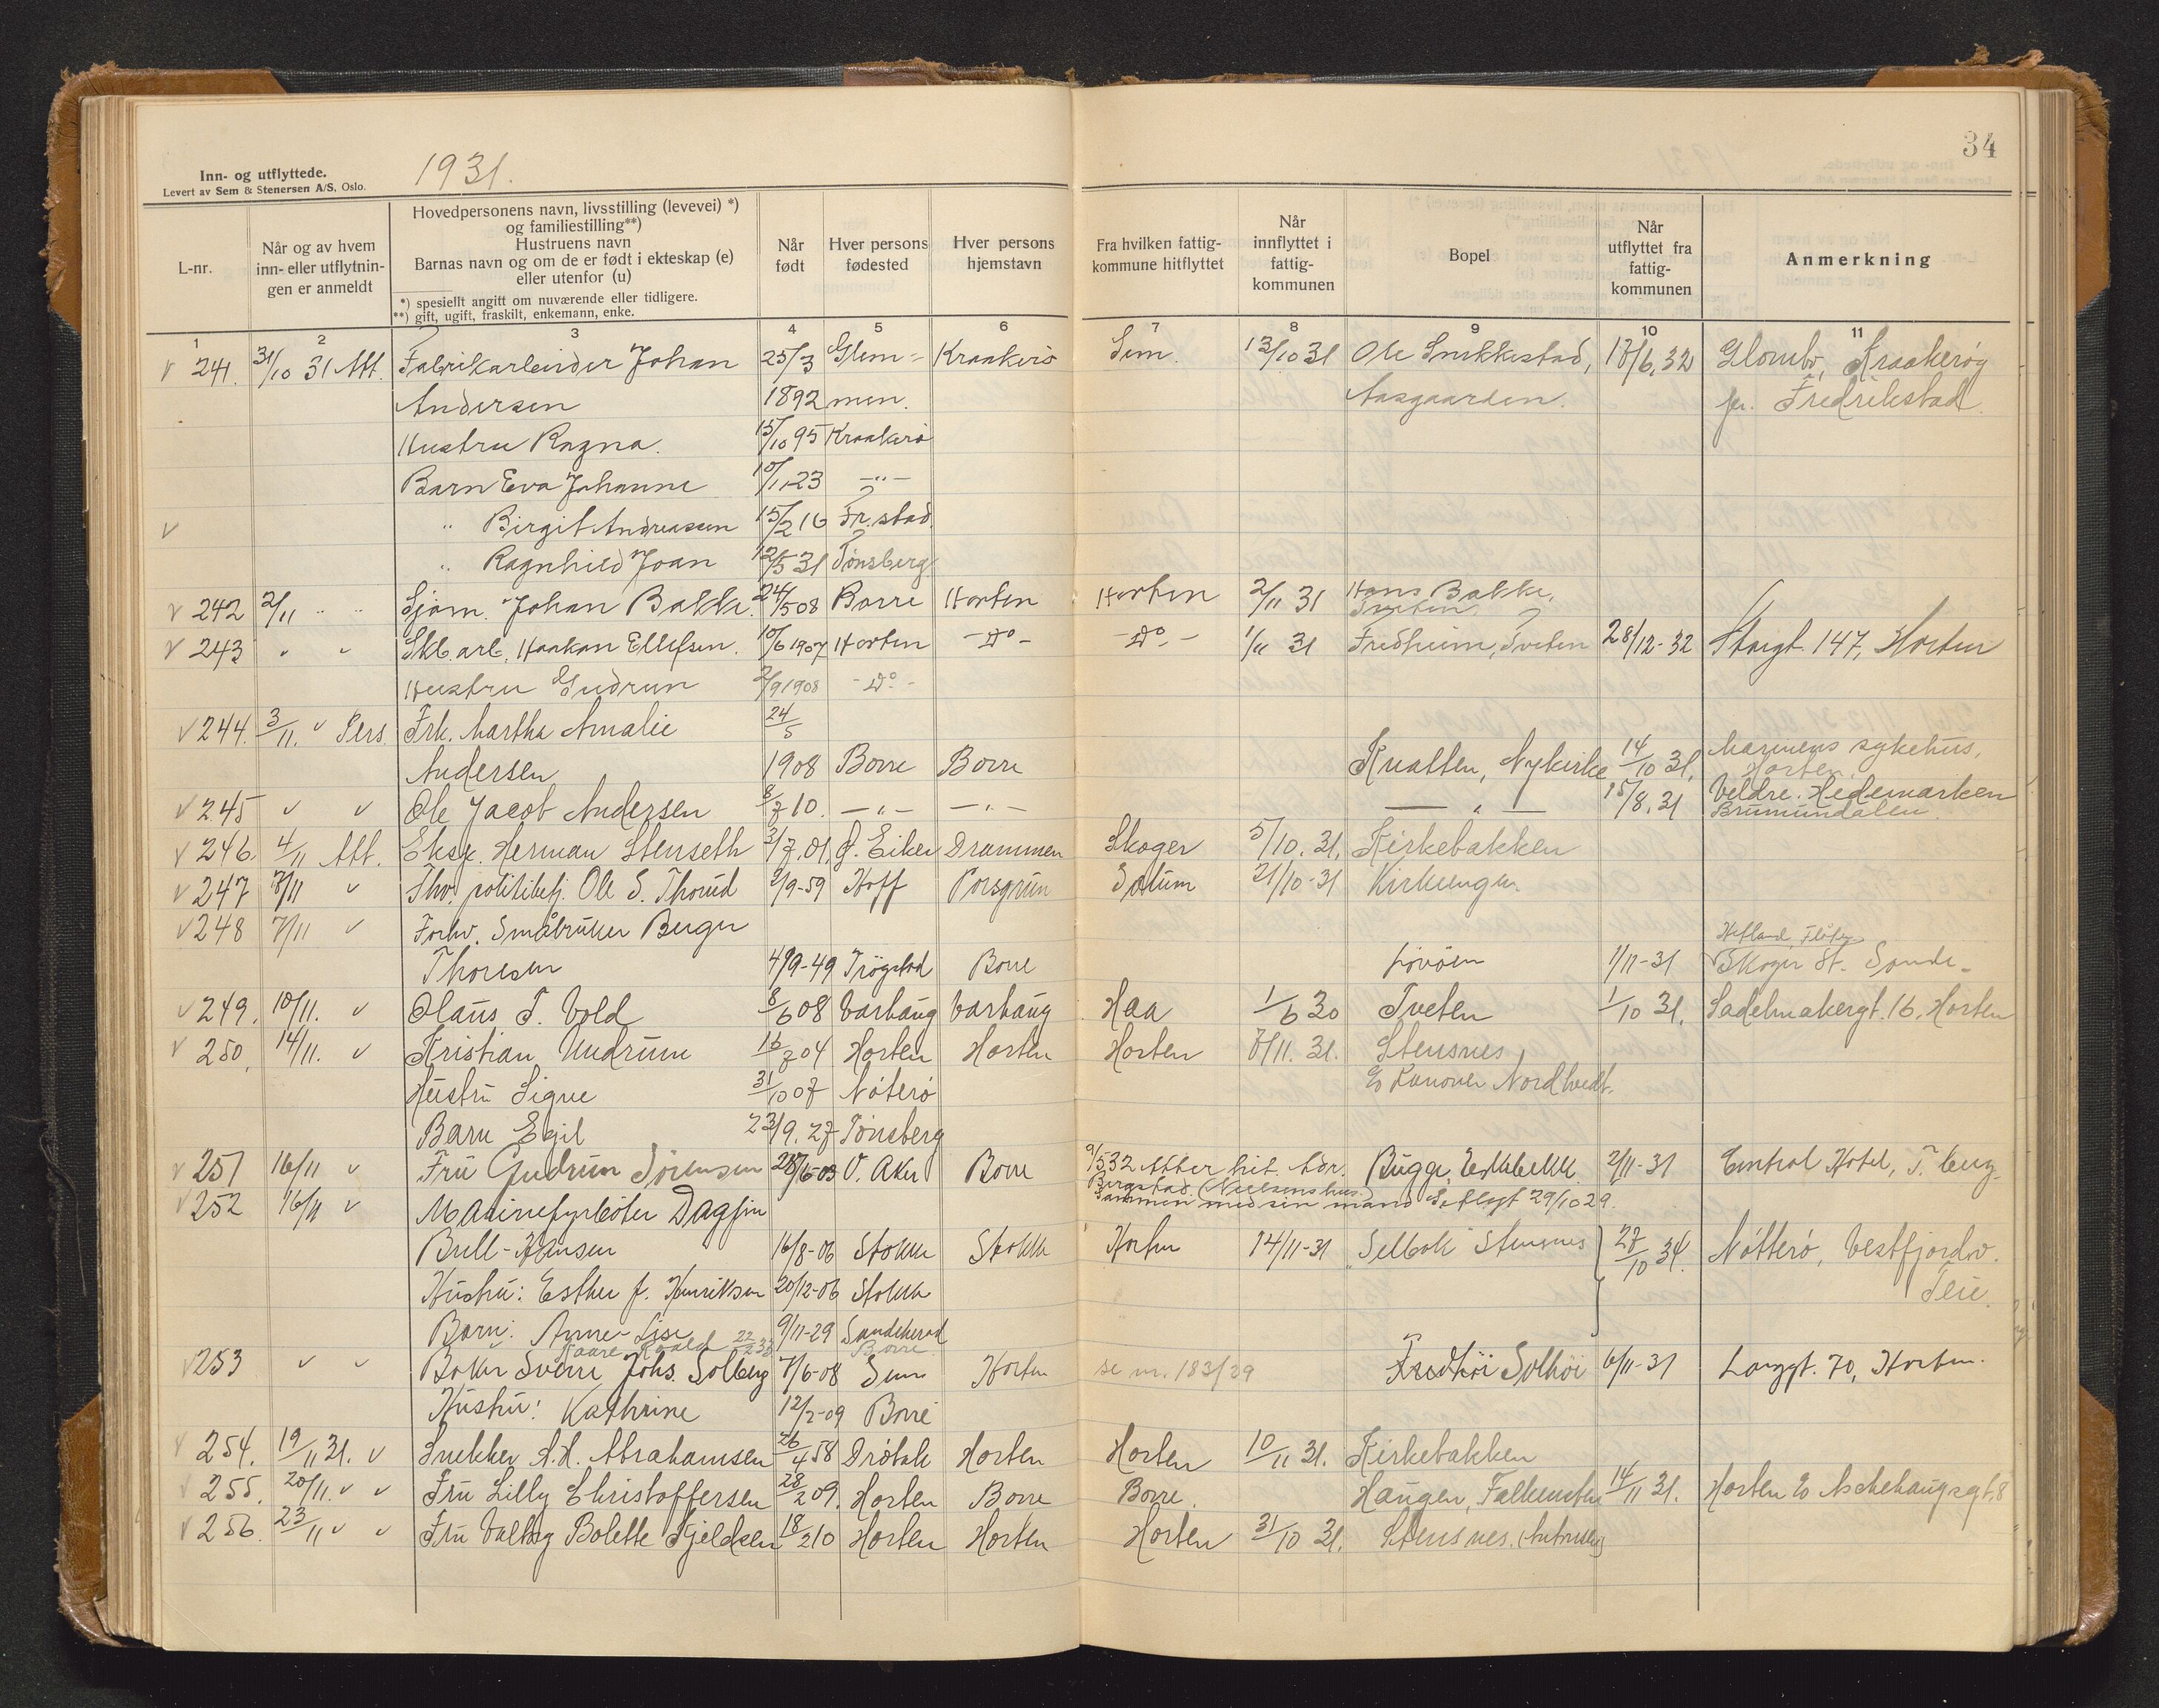 34
Inn- og utflyttede.
Levert av Sem & Stenersen A/S, Oslo.
1931.
L-nr.
Når og av hvem inn- eller utflytnin-gen er anmeldt
Hovedpersonens navn, livsstilling (levevei) *)
og familiestilling**)
Hustruens navn
Barnas navn og om de er født i ekteskap (e)
eller utenfor (u)
*) spesiellt angitt om nuværende eller tidligere.
**) gift, ugift, fraskilt, enkemann, enke.
Når født
Hver persons fødested
Hver persons hjemstavn
Fra hvilken fattig-kommune hitflyttet
Når innflyttet i fattig-kommunen
Bopel
Når utflyttet fra fattig-kommunen
Anmerkning
1 2 3 4 5 6 7 8 9 10 11
241. 31/10 31 Att. Fabrikarbeider Johan 25/3 Glem- Kraakerö Sem. 13/10 31 Ole Snekkestad, 13/6.32 Glombo, Kraakerøy
Andersen 1892 men. Aasgaarden. pr. Fredrikstad.
Hustru Ragna. 15/10 95 Kraakerö
Barn Eva Johanne 10/1.23 -"-
" Birgit Andreassen 15/2 16 Fr.stad
" Ragnhild Joan 12/5 31 Tønsberg.
242 2/11 " " Sjøm. Johan Bakke. 24/5 08 Borre Horten Horten 2/11 31 Hans Bakke, Tveten
243 " " Skb.arb. Haakon Ellefsen. 10/6 1907 Horten -Do- -Do- 1/11 31 Fredheim, Tveten 28/12-32 Storgt. 147, Horten
Hustru Gudrun 2/9 1908 -Do-
244. 3/11. " Pers. Frk. Martha Amalie 24/5
Andersen 1908 Borre Borre Knatten, Nykirke 14/10 31. Marinens sykehus, Horten.
245 " " Ole Jacob Andersen 8/7 10. -"- -"- -"- 15/8.31 Veldre. Hedemarken Brumundalen.
246. 4/11 Att. Eksp. Herman Stenseth 3/7.01. Ø. Eiker Drammen Skoger 5/10.31. Kirkebakken
247 7/11 " Fhv. politibetj. Ole S. Thorud 2/9-59 Hoff Porsgrun Solum 21/10-31 Kirkeengen.
248 7/11 " Forhv. Småbruker Berger
Thoresen 4/9-49 Trögstad Borre Lövöen 1/11-31 Skoger St. Sande.
249. 10/11. " Olaus T. Vold 8/6 08 Varhaug Varhaug Haa 1/6 30 Tveten 1/10 31. Sadelmakergt. 16. Horten
250. 14/11. " Kristian Undrum 16/7 04 Horten Horten Horten 7/11. 31. Stensnes
Hustru Signe 31/10 07 Nøterø Nordtvedt.
Barn Egil 23/9.27 Tønsberg
251 16/11 " Fru Gudrun Sörensen 28/6-03 V. Aker Borre 9/5 32 Atter hit. Adr. Bugge, Eskebekk 2/11-31 Central Hotel, T.berg.
Bergstad (Nielsens hus.)
Sammen med sin mand 29/10 29.
252 16/11 " Marinefyrböter Dagfin
Bull-Hansen 16/8-06 Stokke Stokke Horten 14/11-31 Selbak Stensnes 27/10 34. Nøtterø, Vestfjordv.
Hustru: Esther f. Henriksen 20/12-06 Stokke Teie.
Barn: Anne-Lise 9/11-29 Sandeherad
Kaare Roald 22/2 33 Borre.
253 " " Baker Sverre Johs. Solberg 7/6-08 Sem Horten se nr. 183/29 Fredhöi Solhöi 6/11-31 Langgt. 70, Horten.
Hustru: Kathrine 12/2-09 Borre
254. 19/11 31. " Snekker A.H. Abrahamsen 26/4 58 Drøbak Horten Horten 10/11 31. Kirkebakken
255. 20/11. " " Fru Lilly Christoffersen 28/2 09. Horten Borre Borre. Haugen, Falkensten 14/11 31. Horten Aschehougsgt. 8
256. 23/11 " " Fru Valborg Bolette Kjeldsen 18/2 10 Horten Horten Horten 31/10 31. Stensnes.